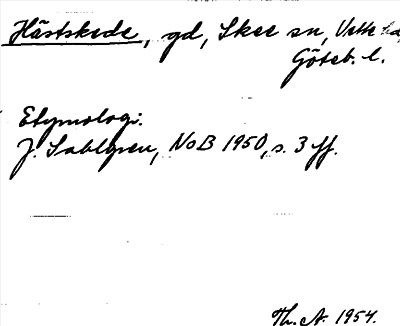 Hästskede, gd, Skee sn, Vette hd,
Göteb. l.
Etymologi.
J. Sahlgren, NoB 1950, s. 3 ff.
Th. A. 1954.